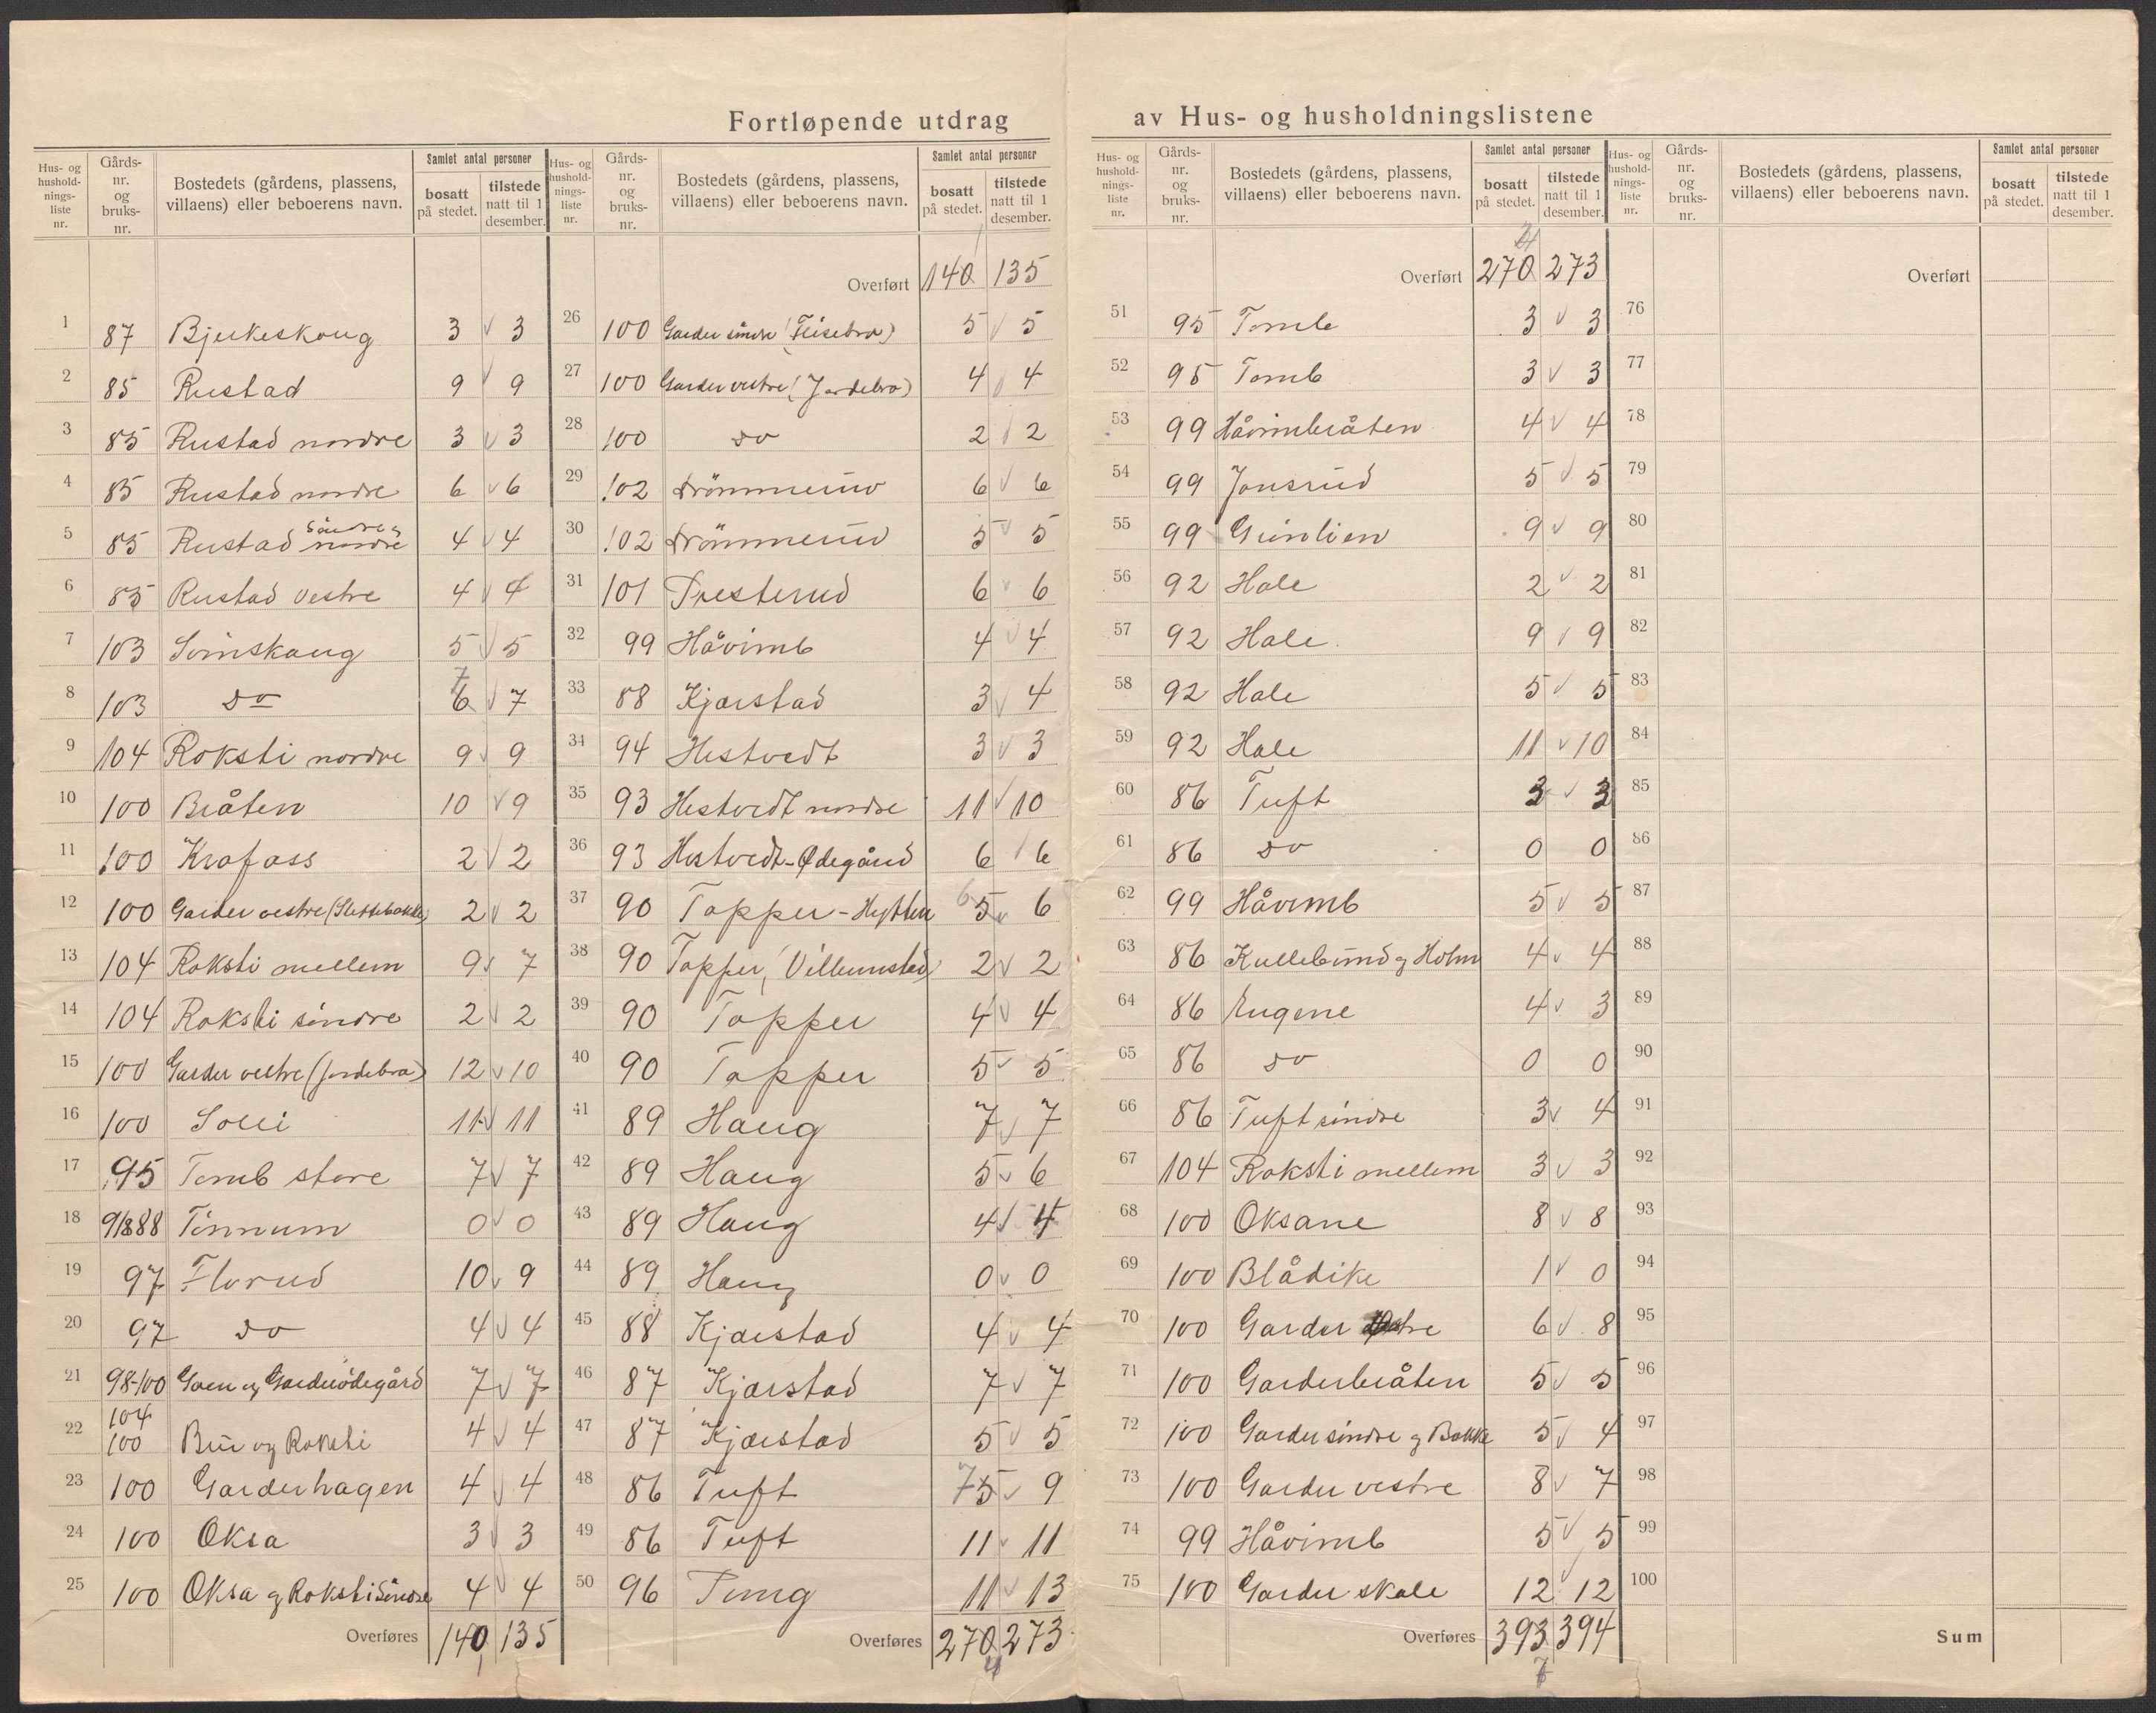 Fortløpende utdrag av Hus- og husholdningslistene
Hus- og husholdnings-liste nr. Gårds-nr. og bruks-nr. Bostedets (gårdens, plassens, villaens) eller beboerens navn. Samlet antal personer bosatt på stedet. tilstede natt til 1 desember.
1 87 Bjerkeskoug 3 v 3
2 85 Rustad 9 v 9
3 85 Rustad nordre 3 v 3
4 85 Rustad nordre 6 v 6
5 85 Rustad nordre Søndre 4 v 4
6 85 Rustad vestre 4 v 4
7 103 Svinskaug 5 v 5
8 103 do 6 7 v 7
9 104 Roksti nordre 9 v 9
10 100 Bråten 10 v 9
11 100 Krafoss 2 v 2
12 100 Garder vestre (Slettebakke) 2 v 2
13 104 Roksti mellem 9 v 7
14 104 Roksti søndre 2 v 2
15 100 Garder vestre (Jordebra) 12 v 10
16 100 Solli 11 v 11
17 95 Tomb store 7 v 7
18 91 & 88 Tinnum 0 v 0
19 97 Florud 10 v 9
20 97 do 4 v 4
21 98-100 Goen og Garderødegård 7 v 7
22 104 100 Bru og Roksti 4 v 4
23 100 Garderhagen 4 v 4
24 100 Oksa 3 v 3
25 100 Oksa og Roksti Søndre 4 v 4
Overføres 140 135
1
Hus- og husholdnings-liste nr. Gårds-nr. og bruks-nr. Bostedets (gårdens, plassens, villaens) eller beboerens navn. Samlet antal personer bosatt på stedet. tilstede natt til 1 desember.
1
Overført 140 135
26 100 Garder søndre (Flisebra) 5 v 5
27 100 Garder vestre (Jordebra) 4 v 4
28 100 do 2 v 2
29 102 6 v 6
30 102 5 v 5
31 101 Presterud 6 v 6
32 99 Håvimb 4 v 4
33 88 Kjærstad 3 v 4
34 94 Hestvedt 3 v 3
35 93 Hestvedt nordre 11 v 10
36 93 Hestvedt-Ødegård 6 v 6
37 90 Topper-Hytten 6 5 v 6
38 90 Topper (Villumstad) 2 v 2
39 90 Topper 4 v 4
40 90 Topper 5 v 5
41 89 Haug 7 v 7
42 89 Haug 5 v 6
43 89 Haug 4 v 4
44 89 Haug 0 v 0
45 88 Kjærstad 4 v 4
46 87 Kjærstad 7 v 7
47 87 Kjærstad 5 v 5
48 86 Tuft 7 5 v 9
49 86 Tuft 11 v 11
50 96 11 v 13
Overføres 270 273
4
Hus- og husholdnings-liste nr. Gårds-nr. og bruks-nr. Bostedets (gårdens, plassens, villaens) eller beboerens navn. Samlet antal personer bosatt på stedet. tilstede natt til 1 desember.
4
Overført 270 273
51 95 Tomb 3 v 3
52 95 Tomb 3 v 3
53 99 Håvimbråten 4 v 4
54 99 Jonsrud 5 v 5
55 99 Grinlien 9 v 9
56 92 Hale 2 v 2
57 92 Hale 9 v 9
58 92 Hale 5 v 5
59 92 Hale 11 v 10
60 86 Tuft 3 v 3
61 86 do 0 0
62 99 Håvimb 5 v 5
63 86 Kullebund og Holm 4 v 4
64 86 Eugene 4 v 3
65 86 do 0 0
66 86 Tuft søndre 3 v 4
67 104 Roksti mellem 3 v 3
68 100 Oksane 8 v 8
69 100 Blådike 1 v 0
70 100 Garder 6 v 8
71 100 Garderbråten 5 v 5
72 100 Garder søndre og Bakke 5 v 4
73 100 Garder vestre 8 v 7
74 99 Håvimb 5 v 5
75 100 Garder skole 12 v 12
Overføres 393 394
7
Hus- og husholdnings-liste nr. Gårds-nr. og bruks-nr. Bostedets (gårdens, plassens, villaens) eller beboerens navn. Samlet antal personer bosatt på stedet. tilstede natt til 1 desember.
Overført
76
77
78
79
80
81
82
83
84
85
86
87
88
89
90
91
92
93
94
95
96
97
98
99
100
Sum